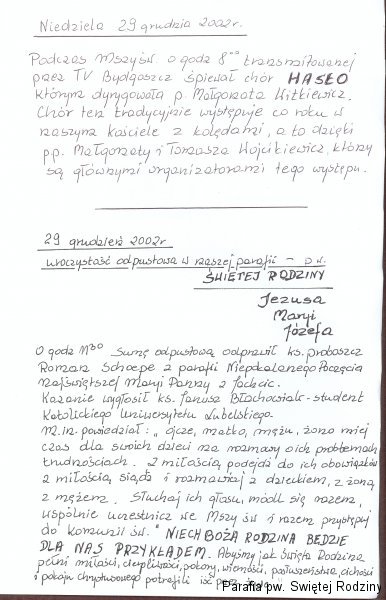 Niedziela 29 grudnia 2002r.
Podczas Mszy św. o godz 8°° transmitowanej
przez TV Bydgoszcz śpiewał chór HASŁO
którym dyrygowała p. Małgorzata Witkiewicz.
Chór ten tradycyjnie występuje co roku w
naszym kościele z kolędami, a to dzięki
pp. Małgorzaty i Tomasza Wojcikiewicz, którzy
są głównymi organizatorami tego występu.
29 grudzień 2002r
uroczystość odpustowa w naszej parafii – p.w.
ŚWIĘTEJ RODZINY
Jezusa
Maryi
Józefa
O godz 11³⁰ Sumę odpustową odprawił ks. proboszcz
Roman z parafii Niepokalanego Poczęcia
Najświętszej Maryi Panny z
Kazanie wygłosił ks. Janusz - student
Katolickiego Uniwersytetu Lubelskiego.
M.in. powiedział: „ojcze, matko, mężu, żono miej
czas dla swoich dzieci na rozmowy o ich problemach
trudnościach. Z miłością podejdź do ich obowiązków
z miłością siądź i rozmawiaj z dzieckiem, z żoną
z mężem. Słuchaj ich głosu, módl się razem,
wspólnie uczestnicz we Mszy św i razem przystępuj
do komunii św." NIECH BOŻA RODZINA BĘDZIE
DLA NAS PRZYKŁADEM. Abyśmy jak Święta Rodzina
pełni miłości, cierpliwości, pokory, wierności, posłuszeństwa, cichości
i pokoju chrystusowego potrafili iść przez
Parafia pw. Świętej Rodziny